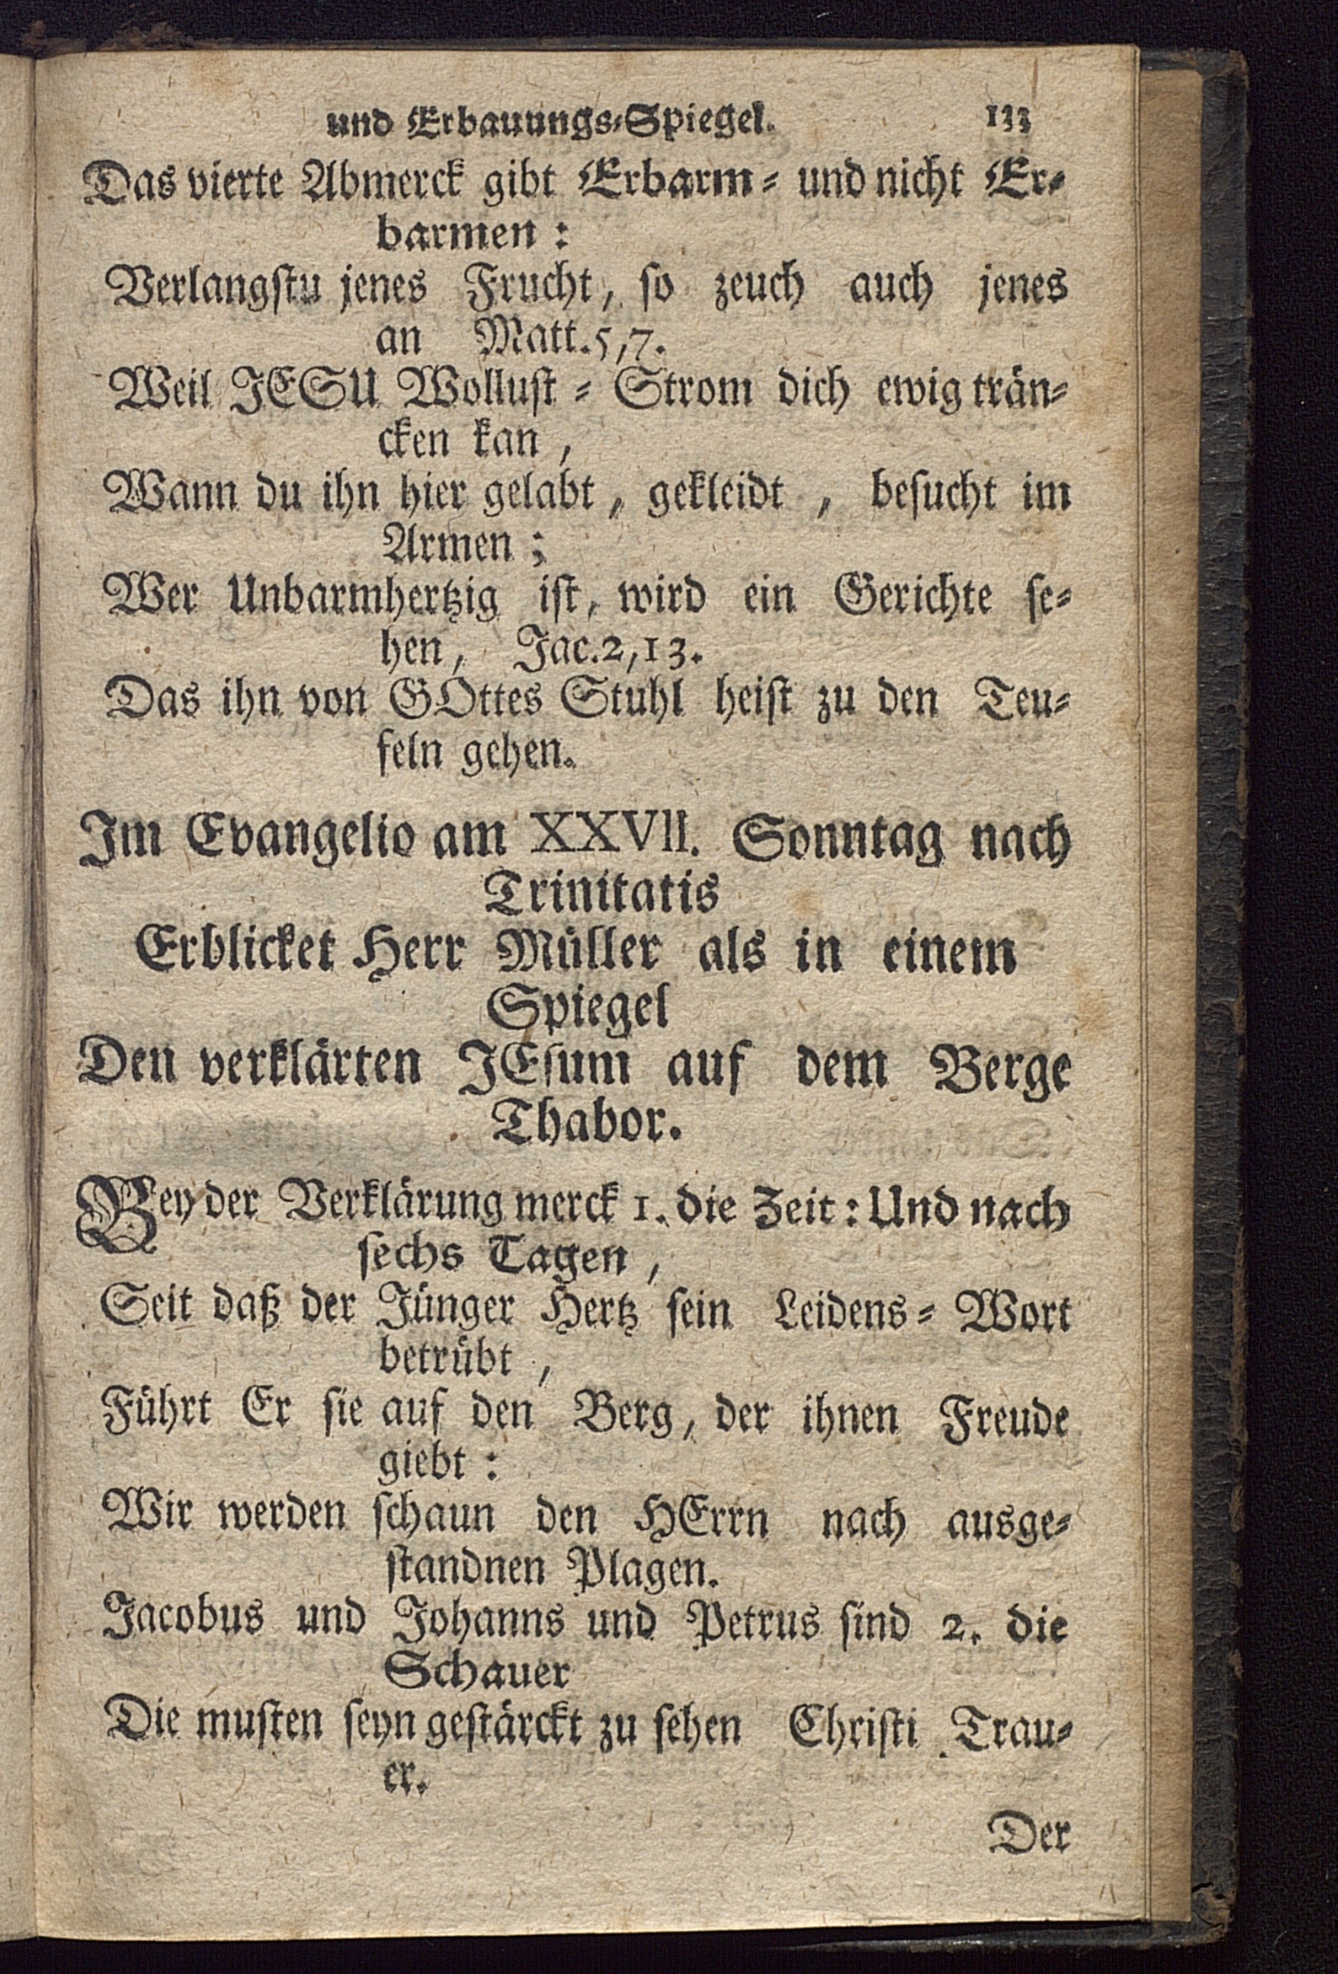 und Erbauungs-Spiegel. 133
Das vierte Abmerck gibt Erbarm- und nicht Er-
barmen:
Verlangstu jenes Frucht, so zeuch auch jenes
an Matt. 5,7.
Weil JESU Wollust-Strom dich ewig trän-
cken kan,
Wann du ihn hier gelabt, gekleidt, besucht im
Armen;
Wer Unbarmhertzig ist, wird ein Gerichte se-
hen, Jac. 2,13.
Das ihn von GOttes Stuhl heist zu den Teu-
feln gehen.
Im Evangelio am XXVII. Sonntag nach
Trinitatis
Erblicket Herr Müller als in einem
Spiegel
Den verklärten JEsum auf dem Berge
Thabor.
Bey der Verklärung merck 1. die Zeit: Und nach
sechs Tagen,
Seit daß der Jünger Hertz sein Leidens-Wort
betrübt,
Führt Er sie auf den Berg, der ihnen Freude
giebt:
Wir werden schaun den HErrn nach ausge-
standnen Plagen.
Jacobus und Johanns und Petrus sind 2. die
Schauer
Die musten seyn gestärckt zu sehen Christi Trau-
er.
Der